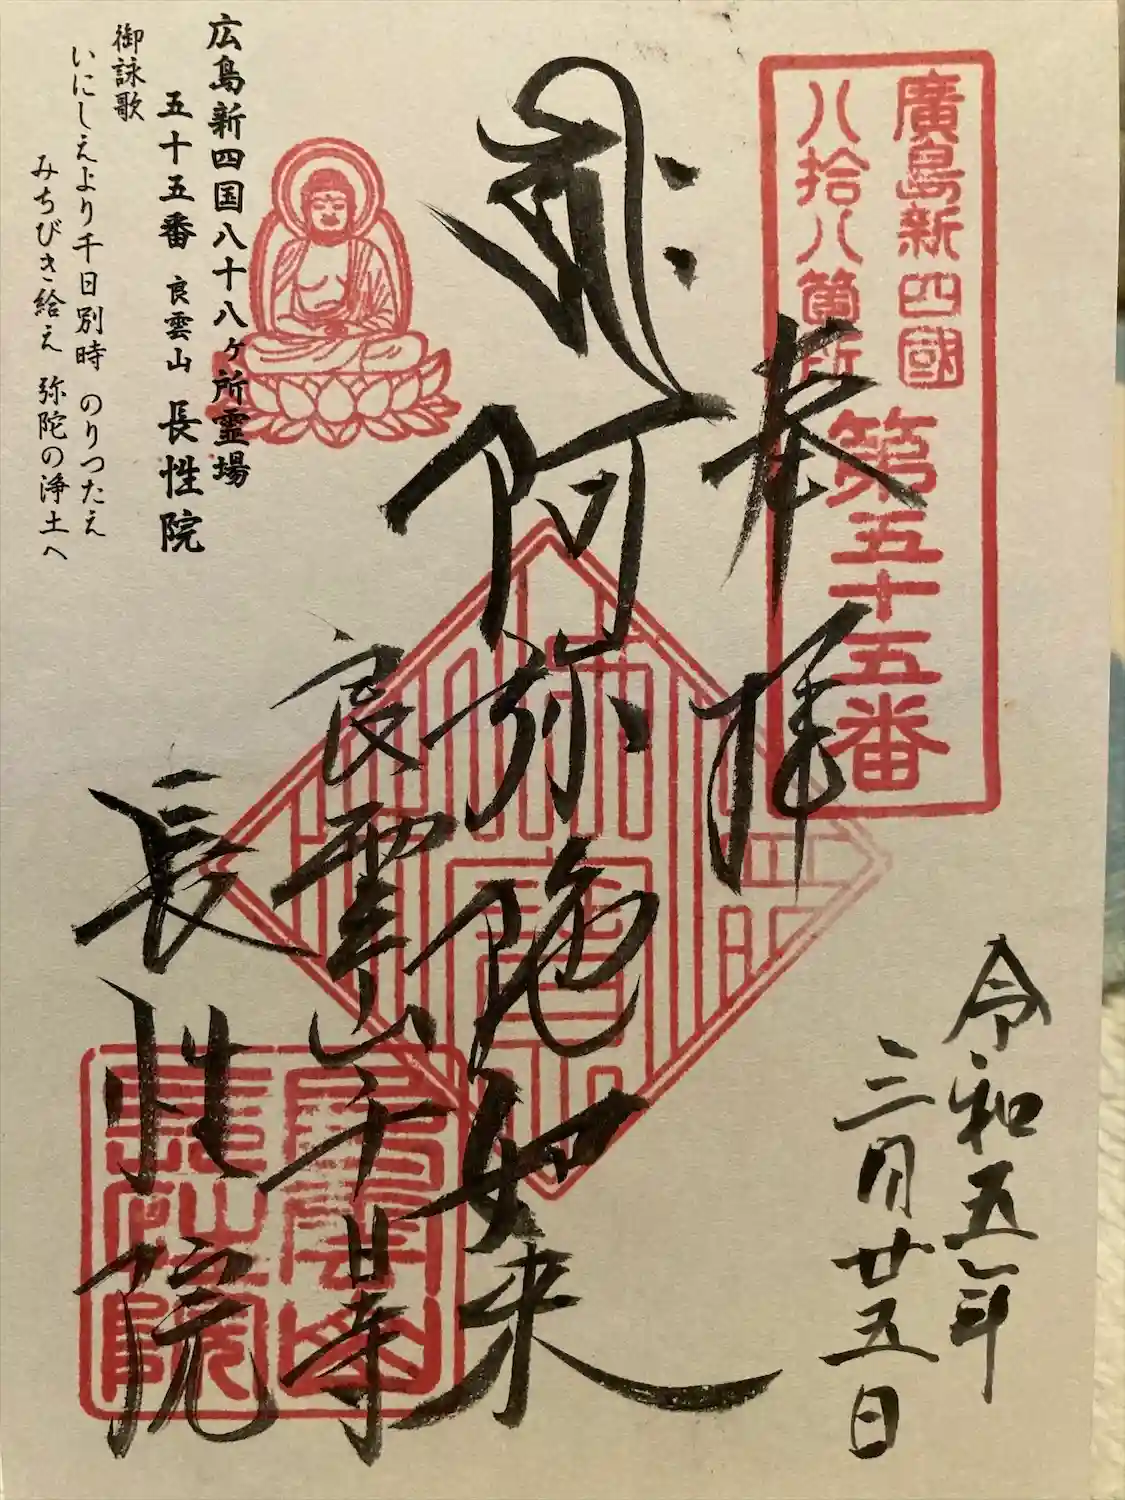 廣島新四國
八拾八箇所
第五十五番
奉拝
令和五年
三月廿五日
阿弥陀如来
良雲山千日寺
長性院
良雲山
長性院
広島新四国八十八ヶ所霊場
五十五番 良雲山 長性院
御詠歌
いにしえより千日別時 のりつたえ
みちびき給え 弥陀の浄土へ